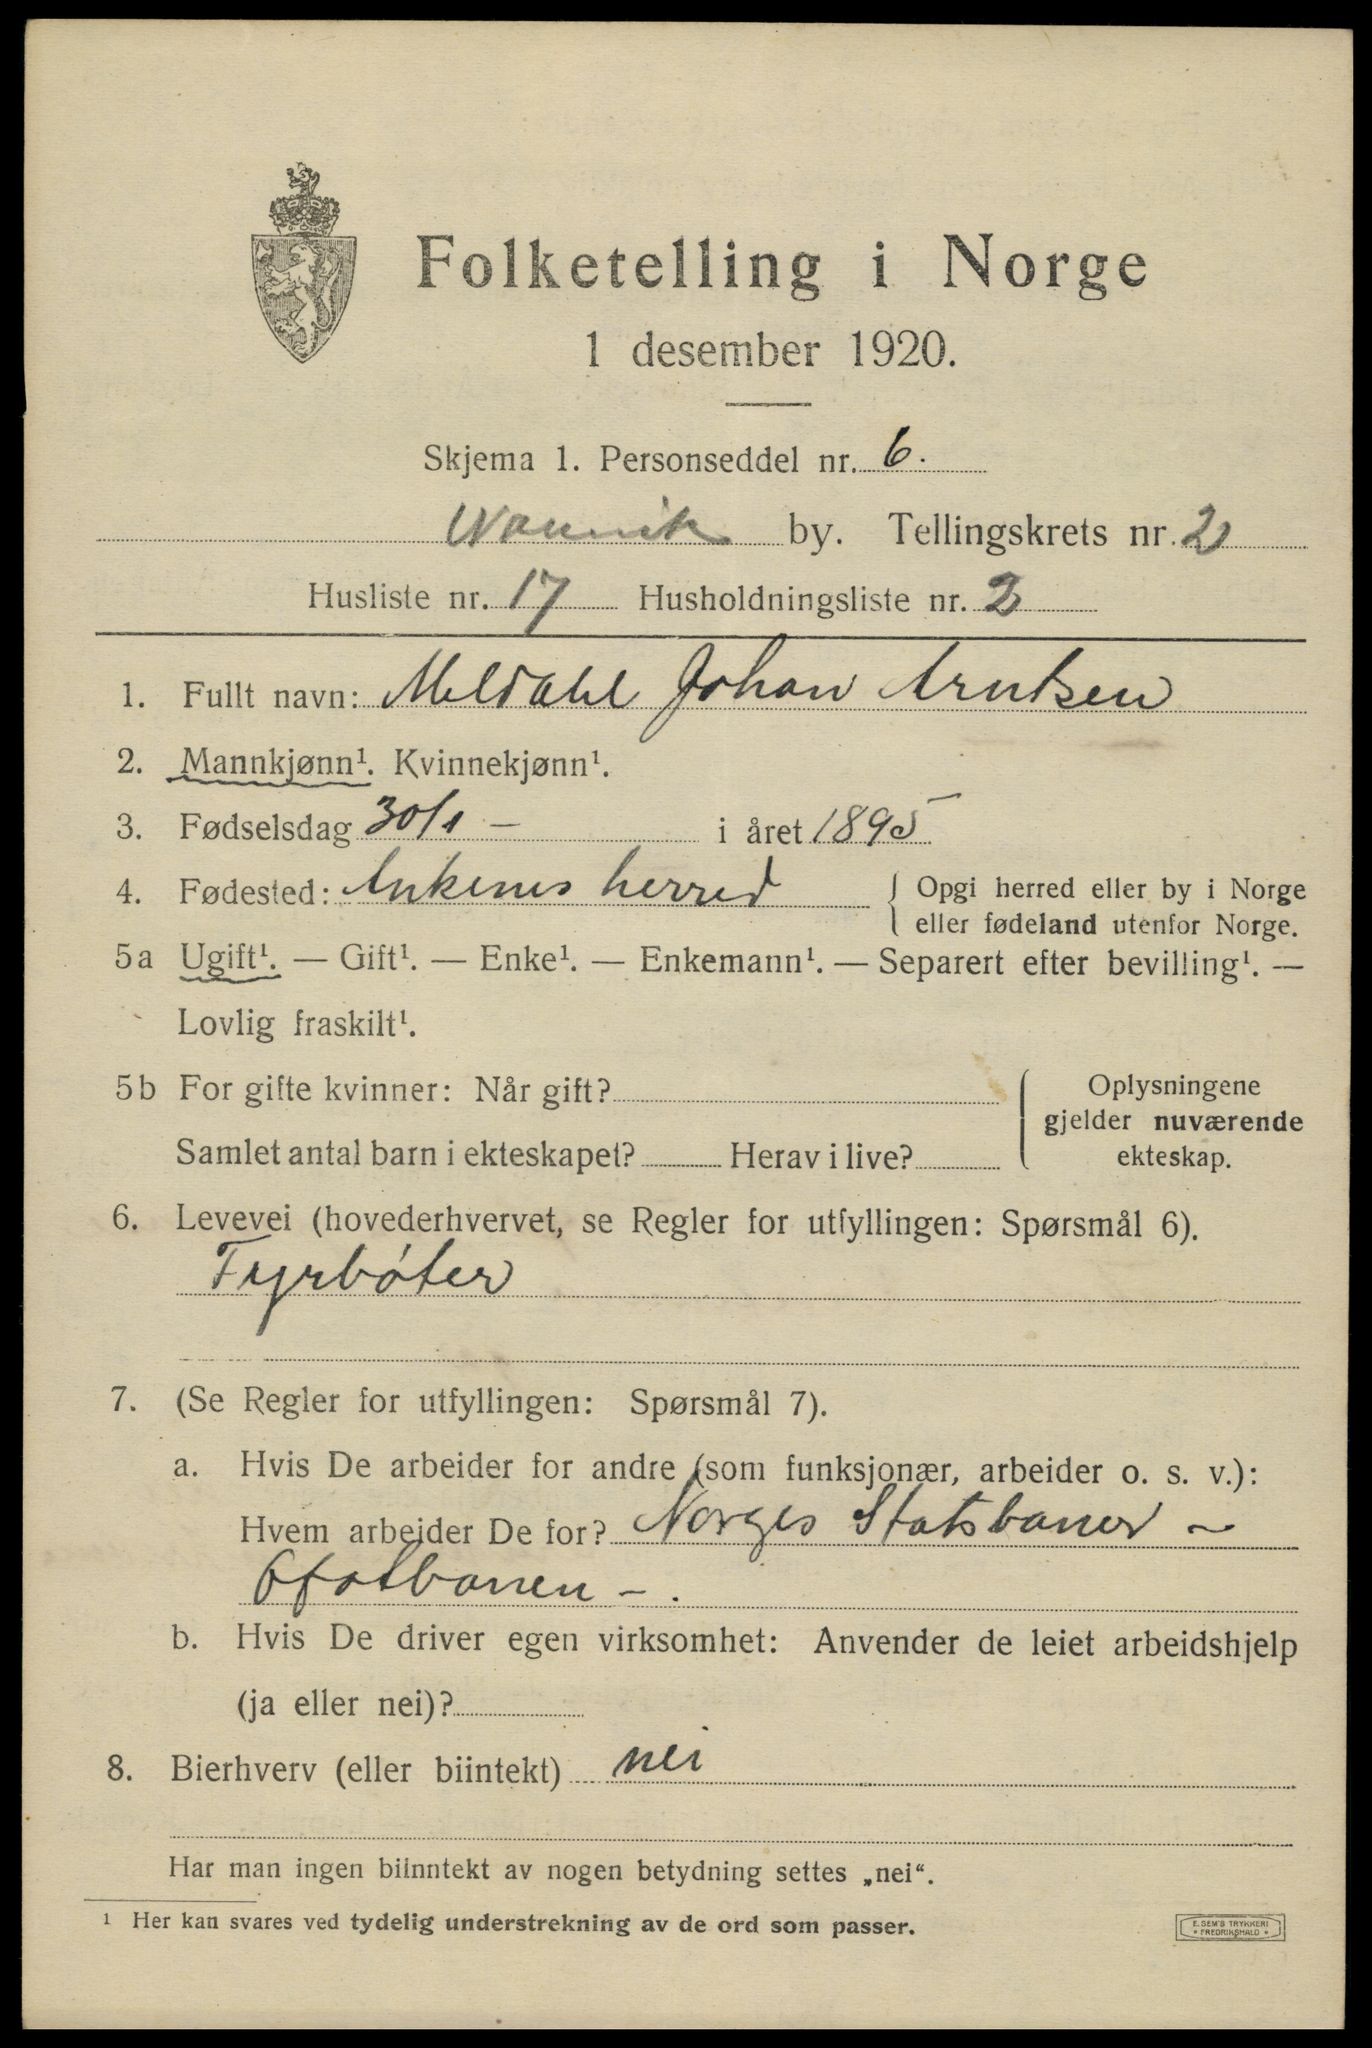 Folketelling i Norge
1 desember 1920.
Skjema 1. Personseddel nr. 6.
Narvik by. Tellingskrets nr. 2
Husliste nr. 17 Husholdningsliste nr. 2
1. Fullt navn: Meldahl Johan Arntsen
2. Mannkjønn¹. Kvinnekjønn¹.
3. Fødselsdag 30/1 - i året 1895
4. Fødested: Ankenes herred { Opgi herred eller by i Norge
eller fødeland utenfor Norge.
5a Ugift¹. — Gift¹. — Enke¹. — Enkemann¹. — Separert efter bevilling¹. —
Lovlig fraskilt¹.
5b For gifte kvinner: Når gift? Oplysningene
gjelder nuværende
Samlet antal barn i ekteskapet? Herav i live? ekteskap.
6. Levevei (hovederhvervet, se Regler for utfyllingen: Spørsmål 6).
Fyrbøter
7. (Se Regler for utfyllingen: Spørsmål 7).
a. Hvis De arbeider for andre (som funksjonær, arbeider o. s. v.):
Hvem arbeider De for? Norges Statsbaner -
Ofotbanen - .
b. Hvis De driver egen virksomhet: Anvender de leiet arbeidshjelp
(ja eller nei)?
8. Bierhverv (eller biintekt) nei
Har man ingen biinntekt av nogen betydning settes „nei“.
¹ Her kan svares ved tydelig understrekning av de ord som passer.
E. SEM'S TRYKKERI
* FREDRIKSHALD *